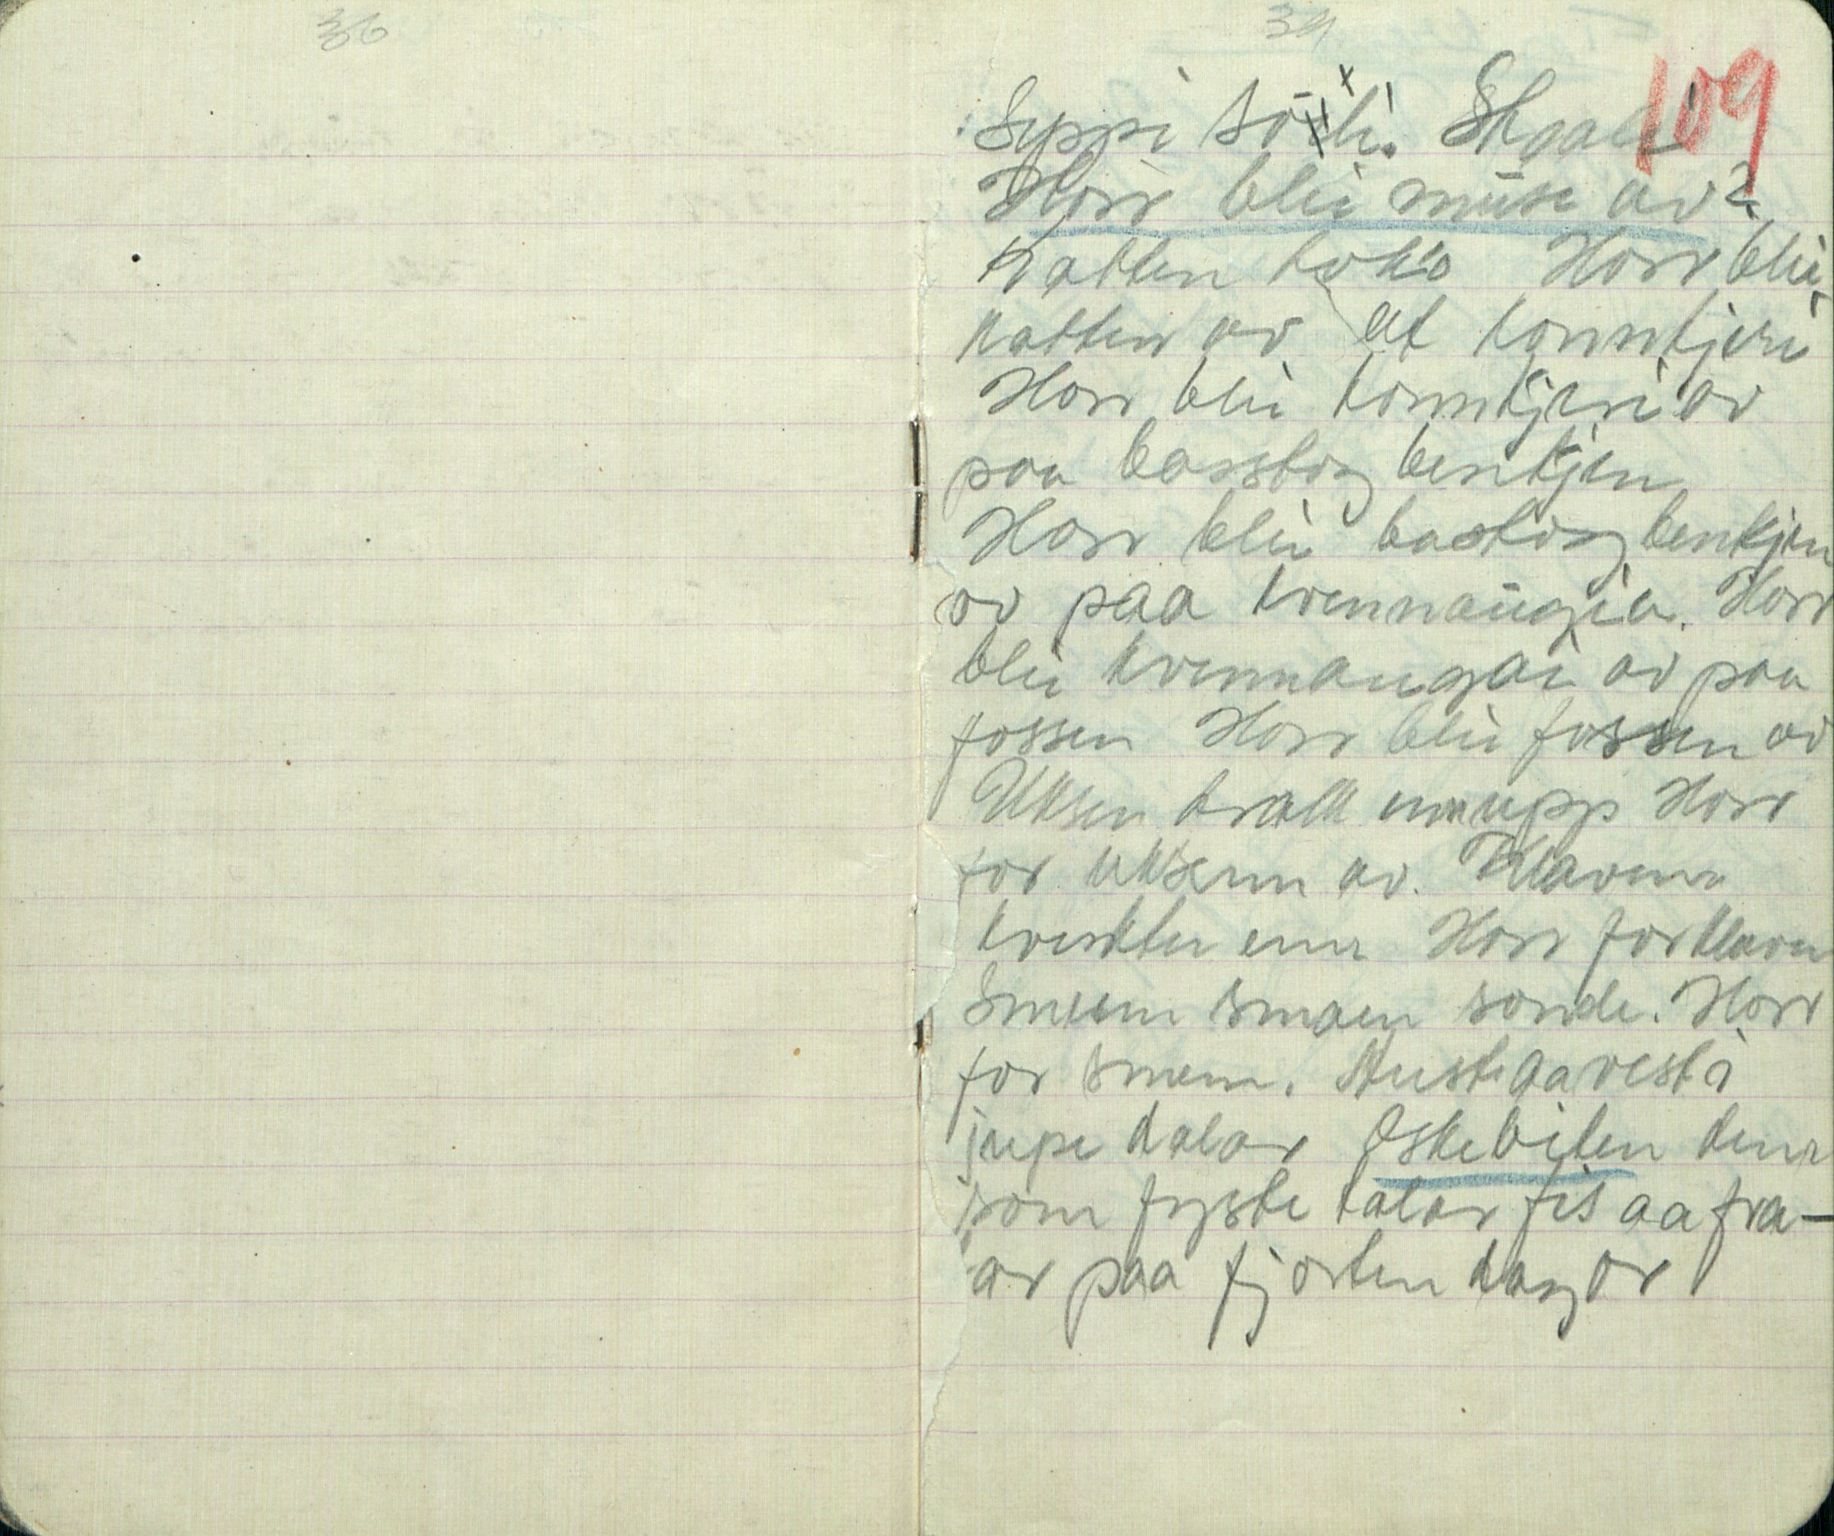 36
34
109
Syppi söli. Skaal
Horr blii müse av?
Katten tok'o Horr blii
katten av at konntjeri
Horr blii konntjeri av
paa basstog benkjen
Horr blii bastog benkjen
av paa kvennaügia. Horr
blii kvennaugai av paa
fossen Horr blii fossen av
Uksen drakk enn upp Horr
for uksenn av. Klavenn
kvekkte enn Horr for klaven
Smeen smaen sonde. Horr
for smeen. Austi aa vest i
jupe dalar Oskebilen denn
som fyste talar fis aa fra-
ar paa fjorten dagor